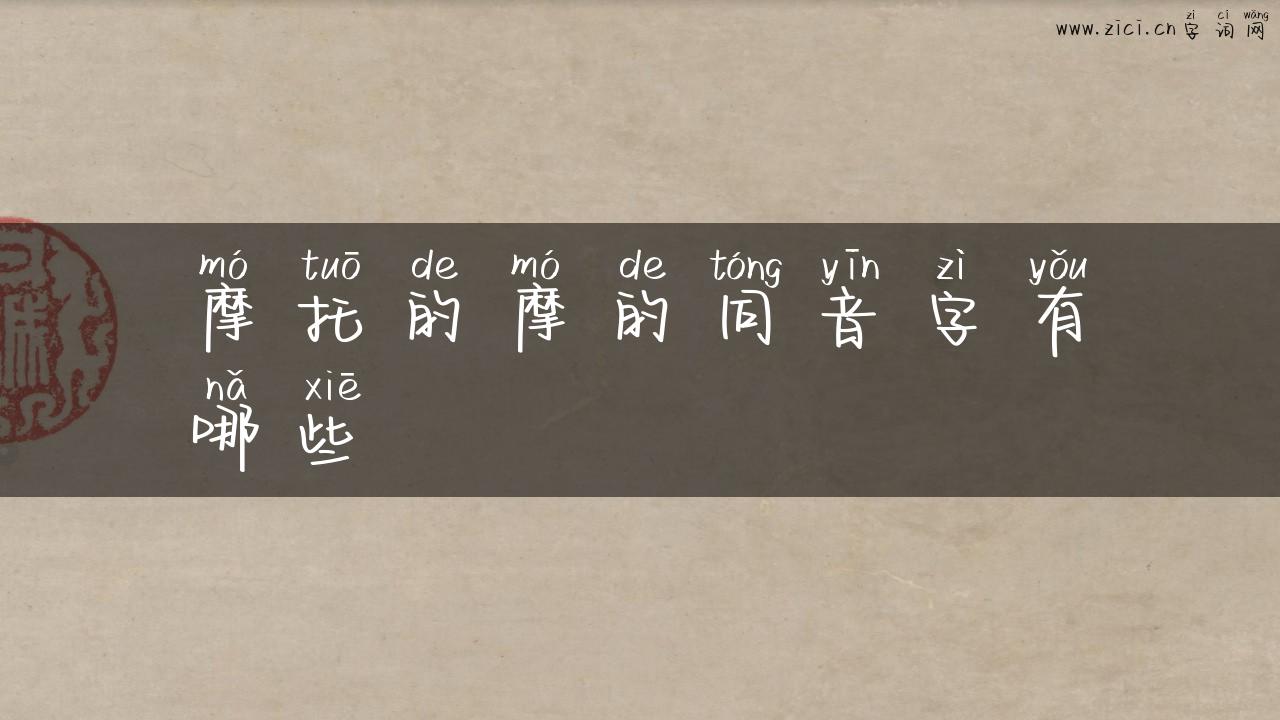 zì cí wǎng
www.zici.cn 字词网
mó tuō de mó de tóng yīn zì yǒu
摩托的摩的同音字有
nǎ xiē
哪些